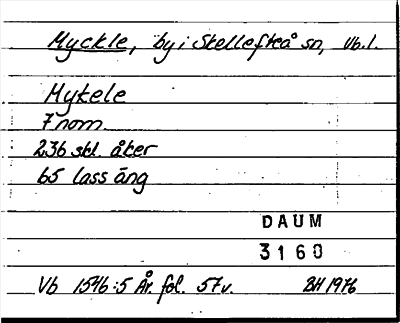 Myckle, by i Skellefteå sn, Vb.l.
Mykele
7 nom.
236 skl. åker
65 lass äng
DAUM
3160
Vb 1546:5 År. fol. 57v. BH 1976